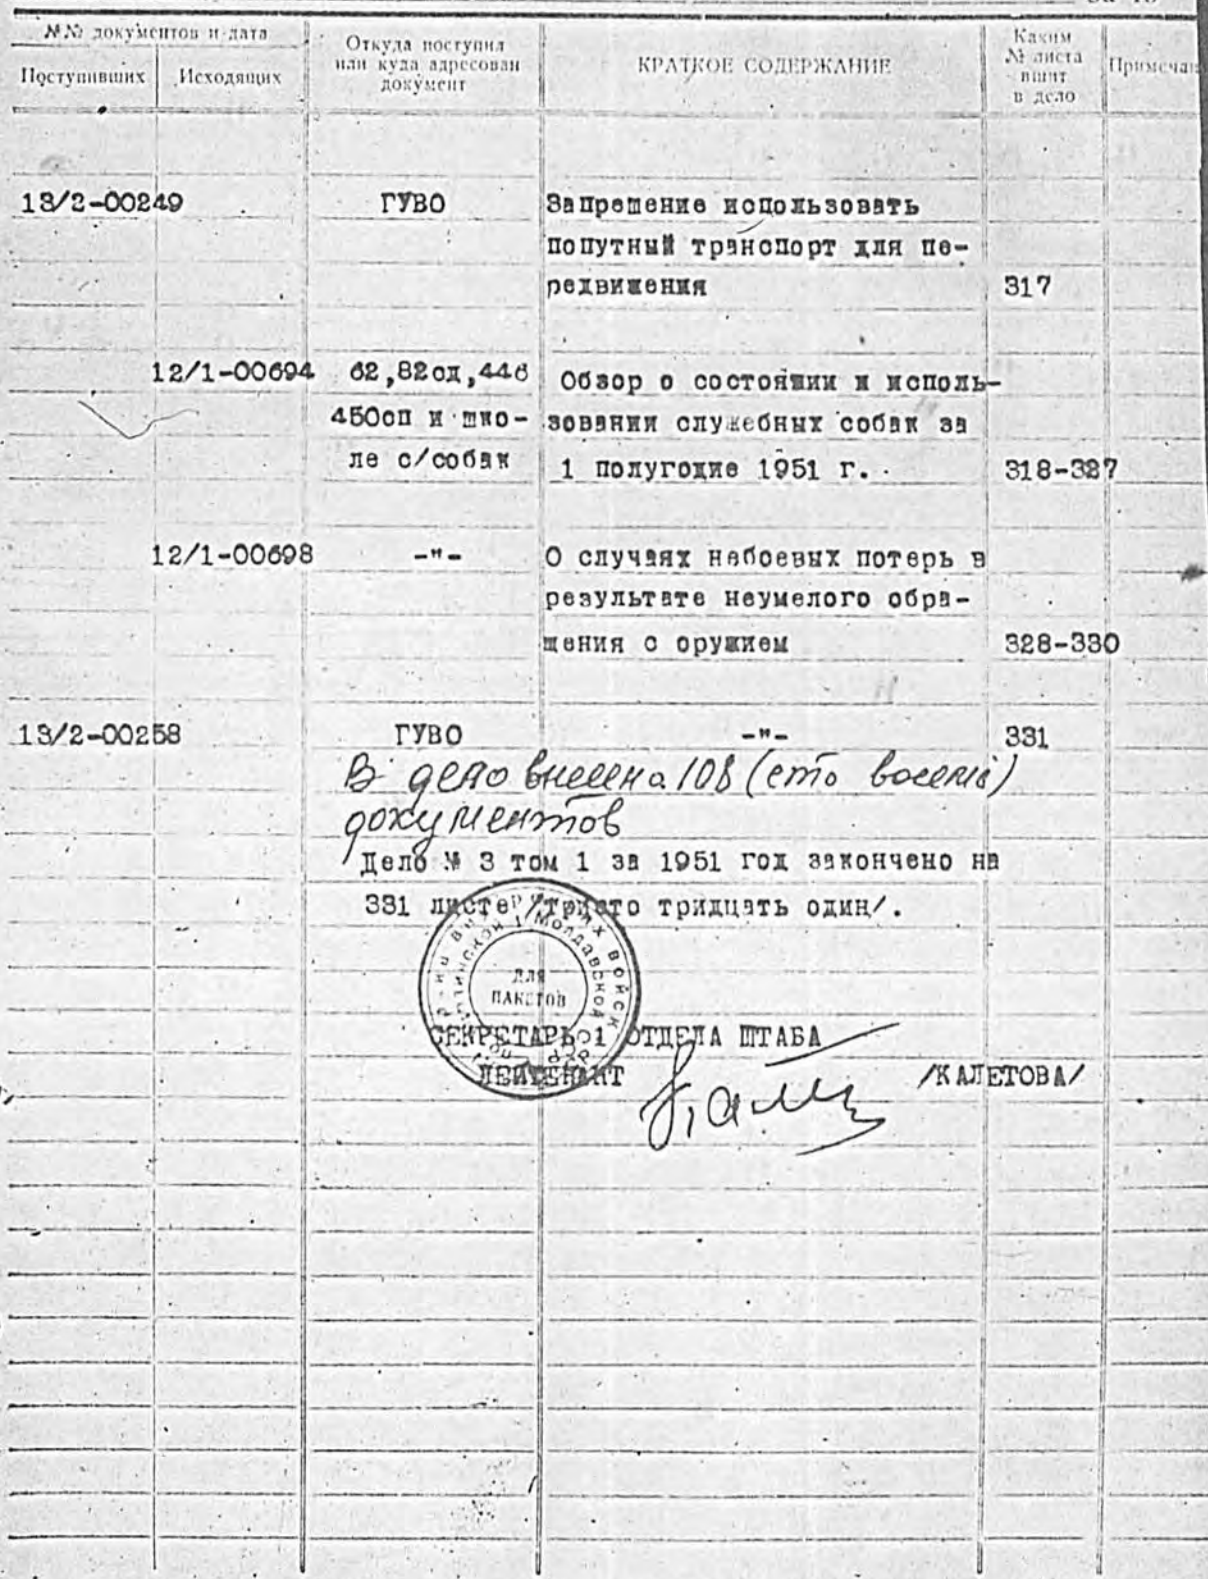 №№ документов и дата
Поступивших
Исходящих
Откуда поступил
или куда адресован
документ
КРАТКОЕ СОДЕРЖАНИЕ
Каким
№ листа
вшит
в дело
Примечан
13/2-00249
ГУВО
Запрещение использовать
попутный транспорт для пе-
редвижения
317
12/1-00694
62,82сд,446
450сп и шко-
ле с/собак
Обзор о состоянии и исполь-
зовании служебных собак за
1 полугодие 1951 г.
318-327
12/1-00698
-"-
О случаях небоевых потерь в
результате неумелого обра-
щения с оружием
328-330
13/2-00258
ГУВО
-"-
331
В дело внесена 108 (сто восемь)
документов
Дело № 3 том 1 за 1951 год закончено на
331 листе/триста тридцать один/.
ДЛЯ
ПАКЕТОВ
СЕКРЕТАРЬ 1 ОТДЕЛА ШТАБА
ЛЕЙТЕНАНТ
/КАЛЕТОВА/